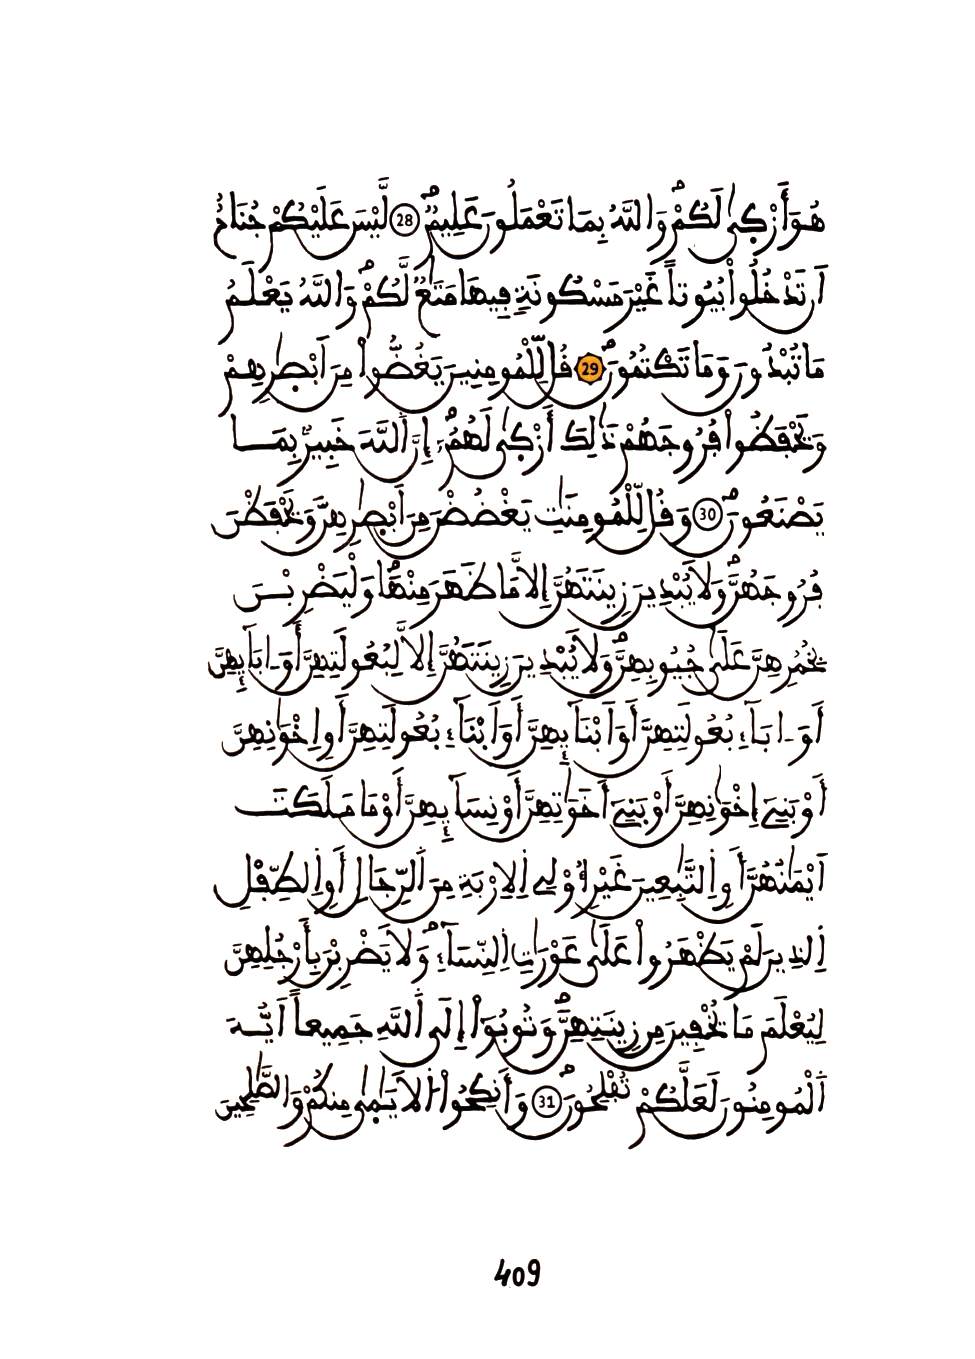 هُوَ أَزْك۪ىٰ لَكُمْۖ وَاللَّهُ بِمَا تَعْمَلُونَ عَلِيمٞۖ 28 لَّيْسَ عَلَيْكُمْ جُنَاحٌ
اَن تَدْخُلُواْ بُيُوتاً غَيْرَ مَسْكُونَةٖ فِيهَا مَتَٰعٞ لَّكُمْۖ وَاللَّهُ يَعْلَمُ
مَا تُبْدُونَ وَمَا تَكْتُمُونَۖ 29 قُل لِّلْمُومِنِينَ يَغُضُّواْ مِنَ اَبْصٰ۪رِهِمْ
وَيَحْفَظُواْ فُرُوجَهُمْ ذَٰلِكَ أَزْك۪ىٰ لَهُمُۥٓۖ إِنَّ اَللَّهَ خَبِيرُۢ بِمَا
يَصْنَعُونَۖ 30 وَقُل لِّلْمُومِنَٰتِ يَغْضُضْنَ مِنَ اَبْصٰ۪رِهِنَّ وَيَحْفَظْنَ
فُرُوجَهُنَّۖ وَلَا يُبْدِينَ زِينَتَهُنَّ إِلَّا مَا ظَهَرَ مِنْهَاۖ وَلْيَضْرِبْنَ
بِخُمُرِهِنَّ عَلَىٰ جُيُوبِهِنَّۖ وَلَا يُبْدِينَ زِينَتَهُنَّ إِلَّا لِبُعُولَتِهِنَّ أَوَ ـابَآئِهِنَّ
أَوَ ـابَآءِ بُعُولَتِهِنَّ أَوَ اَبْنَآئِهِنَّ أَوَ اَبْنَآءِ بُعُولَتِهِنَّ أَوِ اِخْوَٰنِهِنَّ
أَوْ بَنِےٓ إِخْوَٰنِهِنَّ أَوْ بَنِےٓ أَخَوَٰتِهِنَّ أَوْ نِسَآئِهِنَّ أَوْ مَا مَلَكَتَ
اَيْمَٰنُهُنَّ أَوِ اِلتَّٰبِعِينَ غَيْرِ أُوْلِے اِلِارْبَةِ مِنَ اَلرِّجَالِ أَوِ اِلطِّفْلِ
اِلذِينَ لَمْ يَظْهَرُواْ عَلَىٰ عَوْرَٰتِ اِلنِّسَآءِۖ وَلَا يَضْرِبْنَ بِأَرْجُلِهِنَّ
لِيُعْلَمَ مَا يُخْفِينَ مِن زِينَتِهِنَّۖ وَتُوبُوٓاْ إِلَى اَللَّهِ جَمِيعاً اَيُّهَ
اَلْمُومِنُونَ لَعَلَّكُمْ تُفْلِحُونَۖ 31 وَأَنكِحُواْ اُلَايَٰم۪ىٰ مِنكُمْ وَالصَّٰلِحِينَ
409